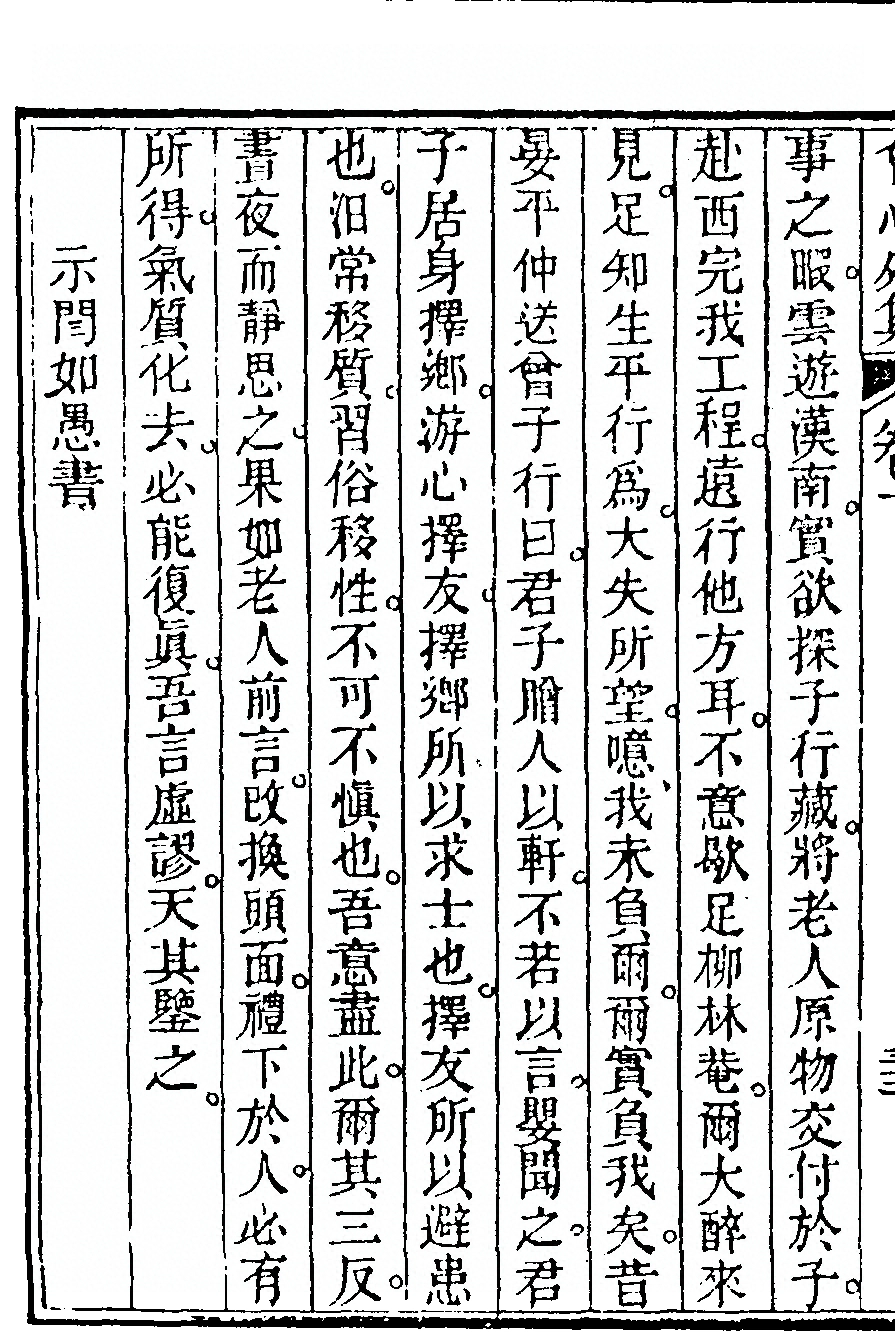 會心外集 卷一 三
事之暇雲遊漢南實欲探子行藏將老人原物交付於子
赴西完我工程遠行他方耳不意歇足柳林菴爾大醉來
見足知生平行爲大失所望噫我未負爾爾實負我矣昔
晏平仲送曾子行曰君子贈人以軒不若以言嬰聞之君
子居身擇鄉游心擇友擇鄉所以求士也擇友所以避患
也汨常移質習俗移性不可不愼也吾意盡此爾其三反
晝夜而靜思之果如老人前言改換頭面禮下於人必有
所得氣質化去必能復眞吾言虛謬天其鑒之
示閆如愚書